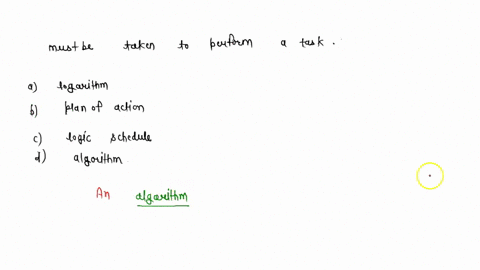 must be taken to perform a task.
a) logarithm
b) plan of action
c) logic schedule
d) algorithm
An algorithm